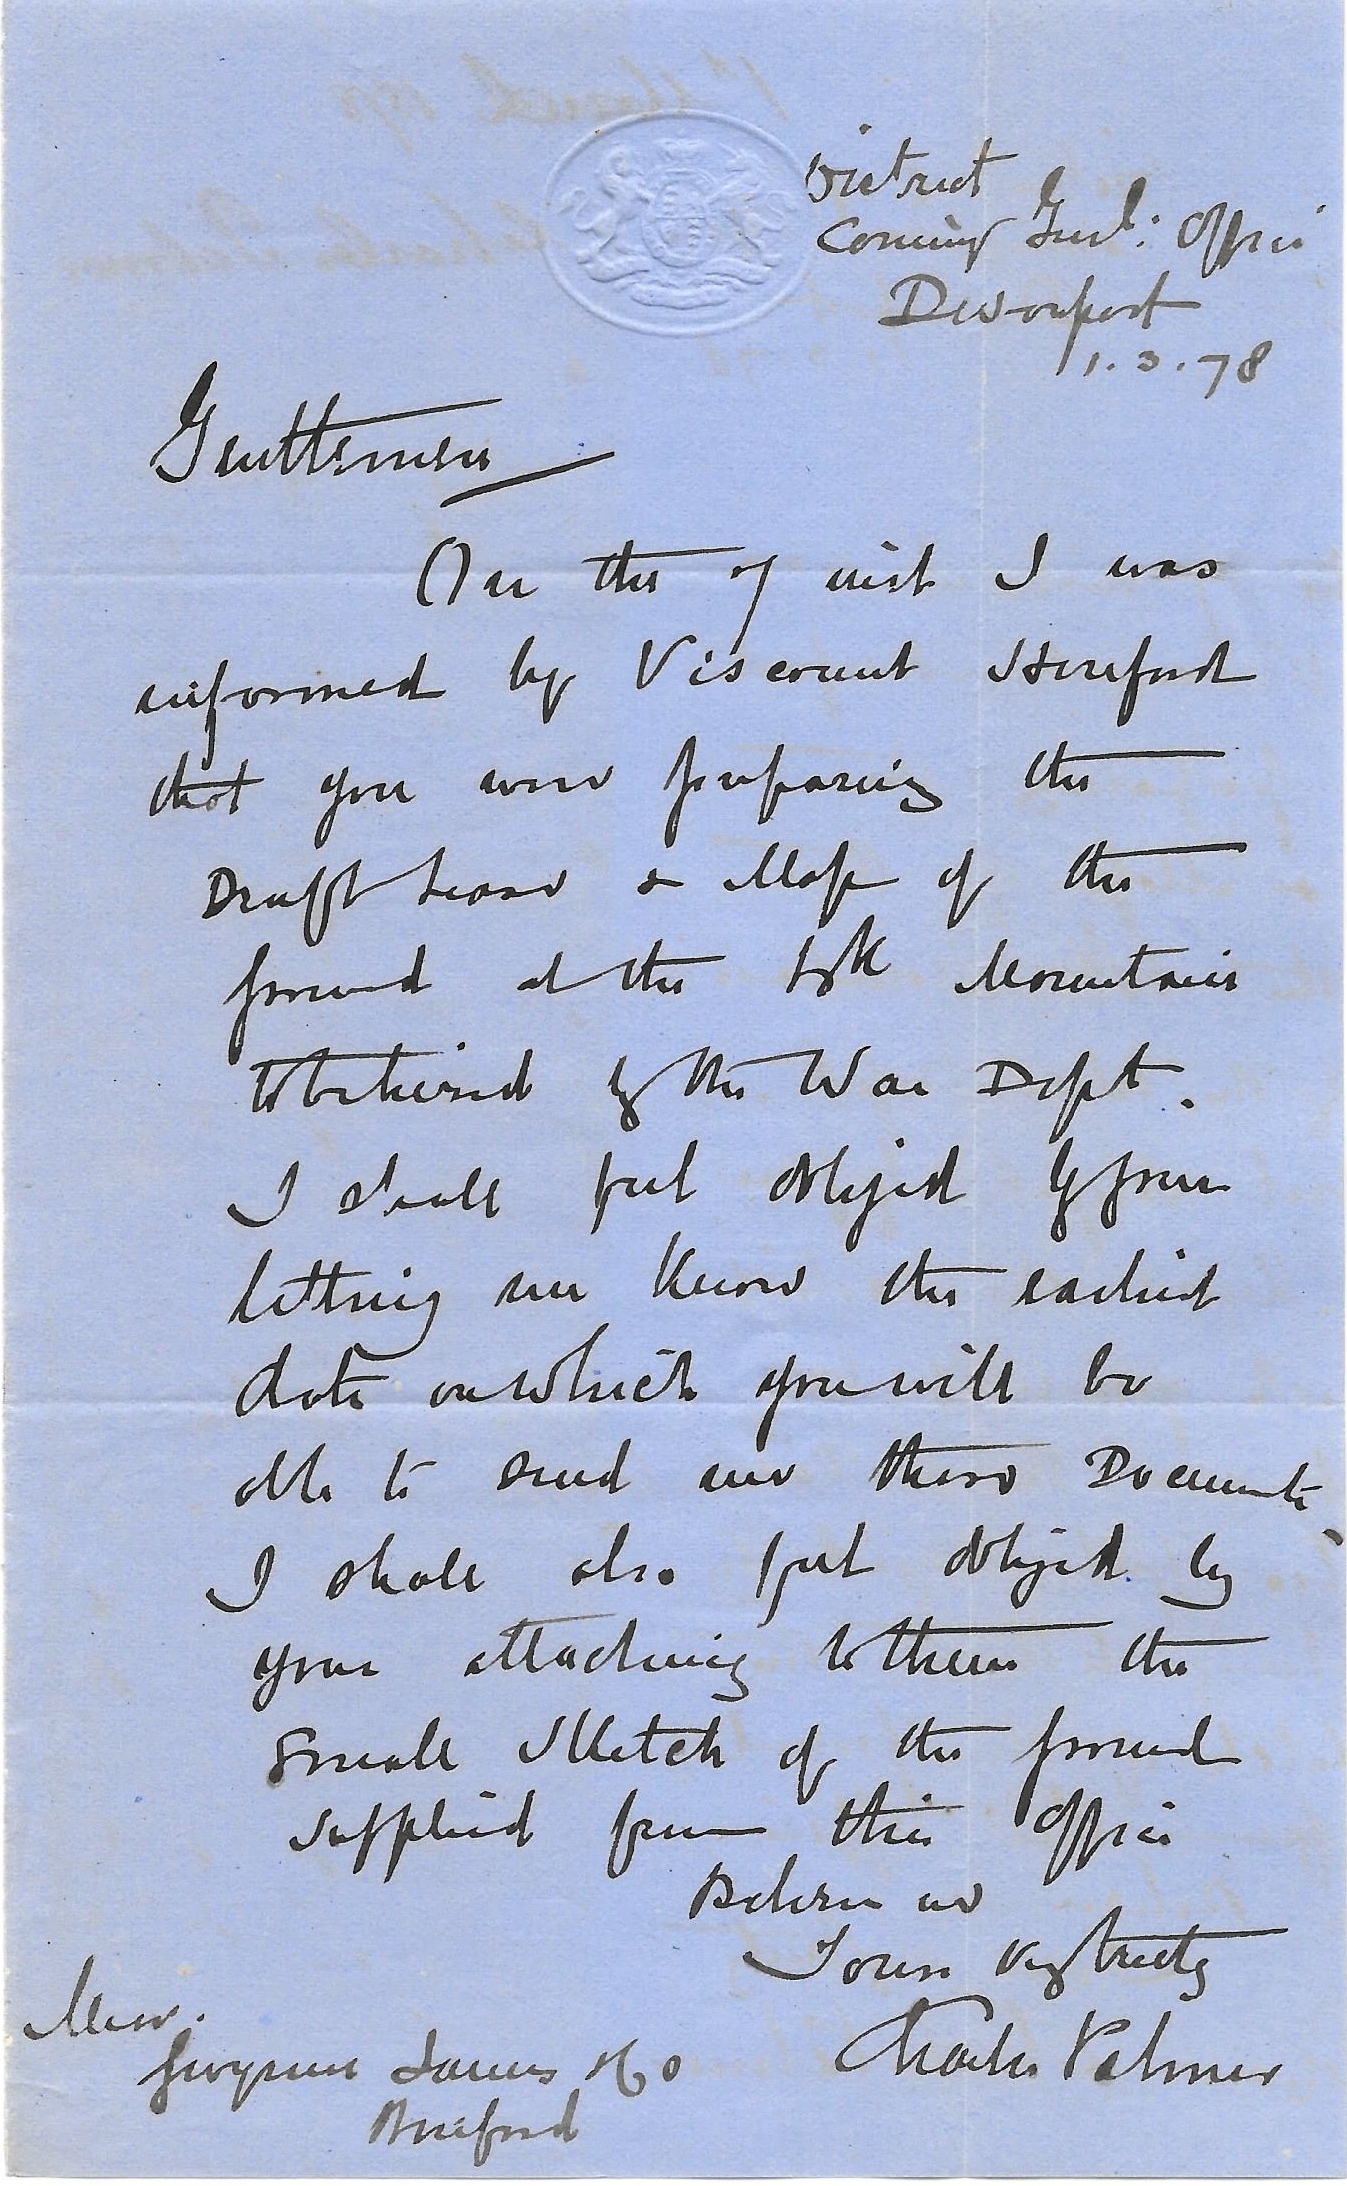 District
Commy Genl: Office
Devonport
1.3.78
Gentlemen
On the 7 inst I was
informed by Viscount Hereford
that you were preparing the
Draft Lease & Map of the
ground at the Mountain
to be hired by the War Dept.
I shall feel obliged by your
letting me know the earliest
date on which you will be
able to send me these Documents.
I shall also feel obliged by
your attaching to them the
Small Sketch of the ground
supplied from this Office
Believe me
Yours very truly
Charles Palmer
Messrs.
Gwynne James & Co
Hereford
1st March 1878
Charles Palmer